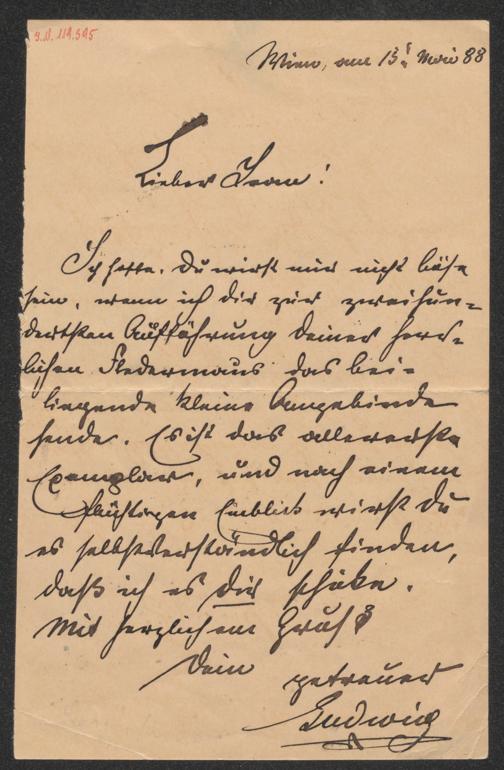 I.N. 119.595
Wien, am 15t Mai 88
Lieber Jean!
Ich hoffe, Du wirst mir nicht böse
sein, wenn ich Dir zur zweihun-
dertsten Aufführung Deiner herr-
lichen Fledermaus das bei-
liegende kleine Angebinde
sende. Es ist das allererste
Exemplar, und nach einem
flüchtigen Einblick wirst Du
es selbstverständlich finden,
daß ich es Dir schicke.
Mit herzlichem Gruß
Dein getreuer
Ludwig